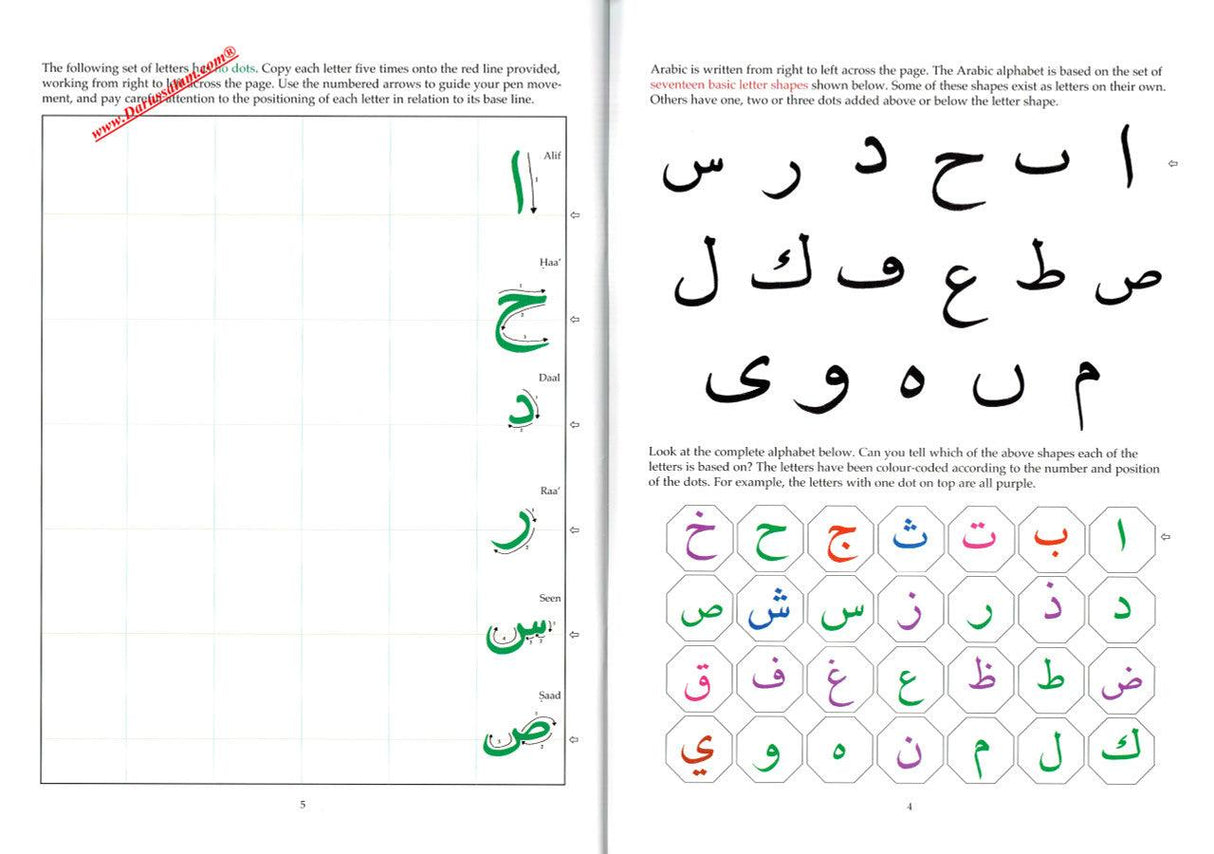 Arabic is written from right to left across the page. The Arabic alphabet is based on the set of
seventeen basic letter shapes shown below. Some of these shapes exist as letters on their own.
Others have one, two or three dots added above or below the letter shape.
ا ٮ ح د ر س
ص ط ع ڡ ك ل
م ں ه و ى
Look at the complete alphabet below. Can you tell which of the above shapes each of the
letters is based on? The letters have been colour-coded according to the number and position
of the dots. For example, the letters with one dot on top are all purple.
ا ب ت ث ج ح خ
د ذ ر ز س ش ص
ض ط ظ ع غ ف ق
ك ل م ن ه و ي
4
www.Darussalam.com®
The following set of letters have no dots. Copy each letter five times onto the red line provided,
working from right to left across the page. Use the numbered arrows to guide your pen move-
ment, and pay careful attention to the positioning of each letter in relation to its base line.
Alif
ا
Ḥaa'
ح
Daal
د
Raa'
ر
Seen
س
Ṣaad
ص
5